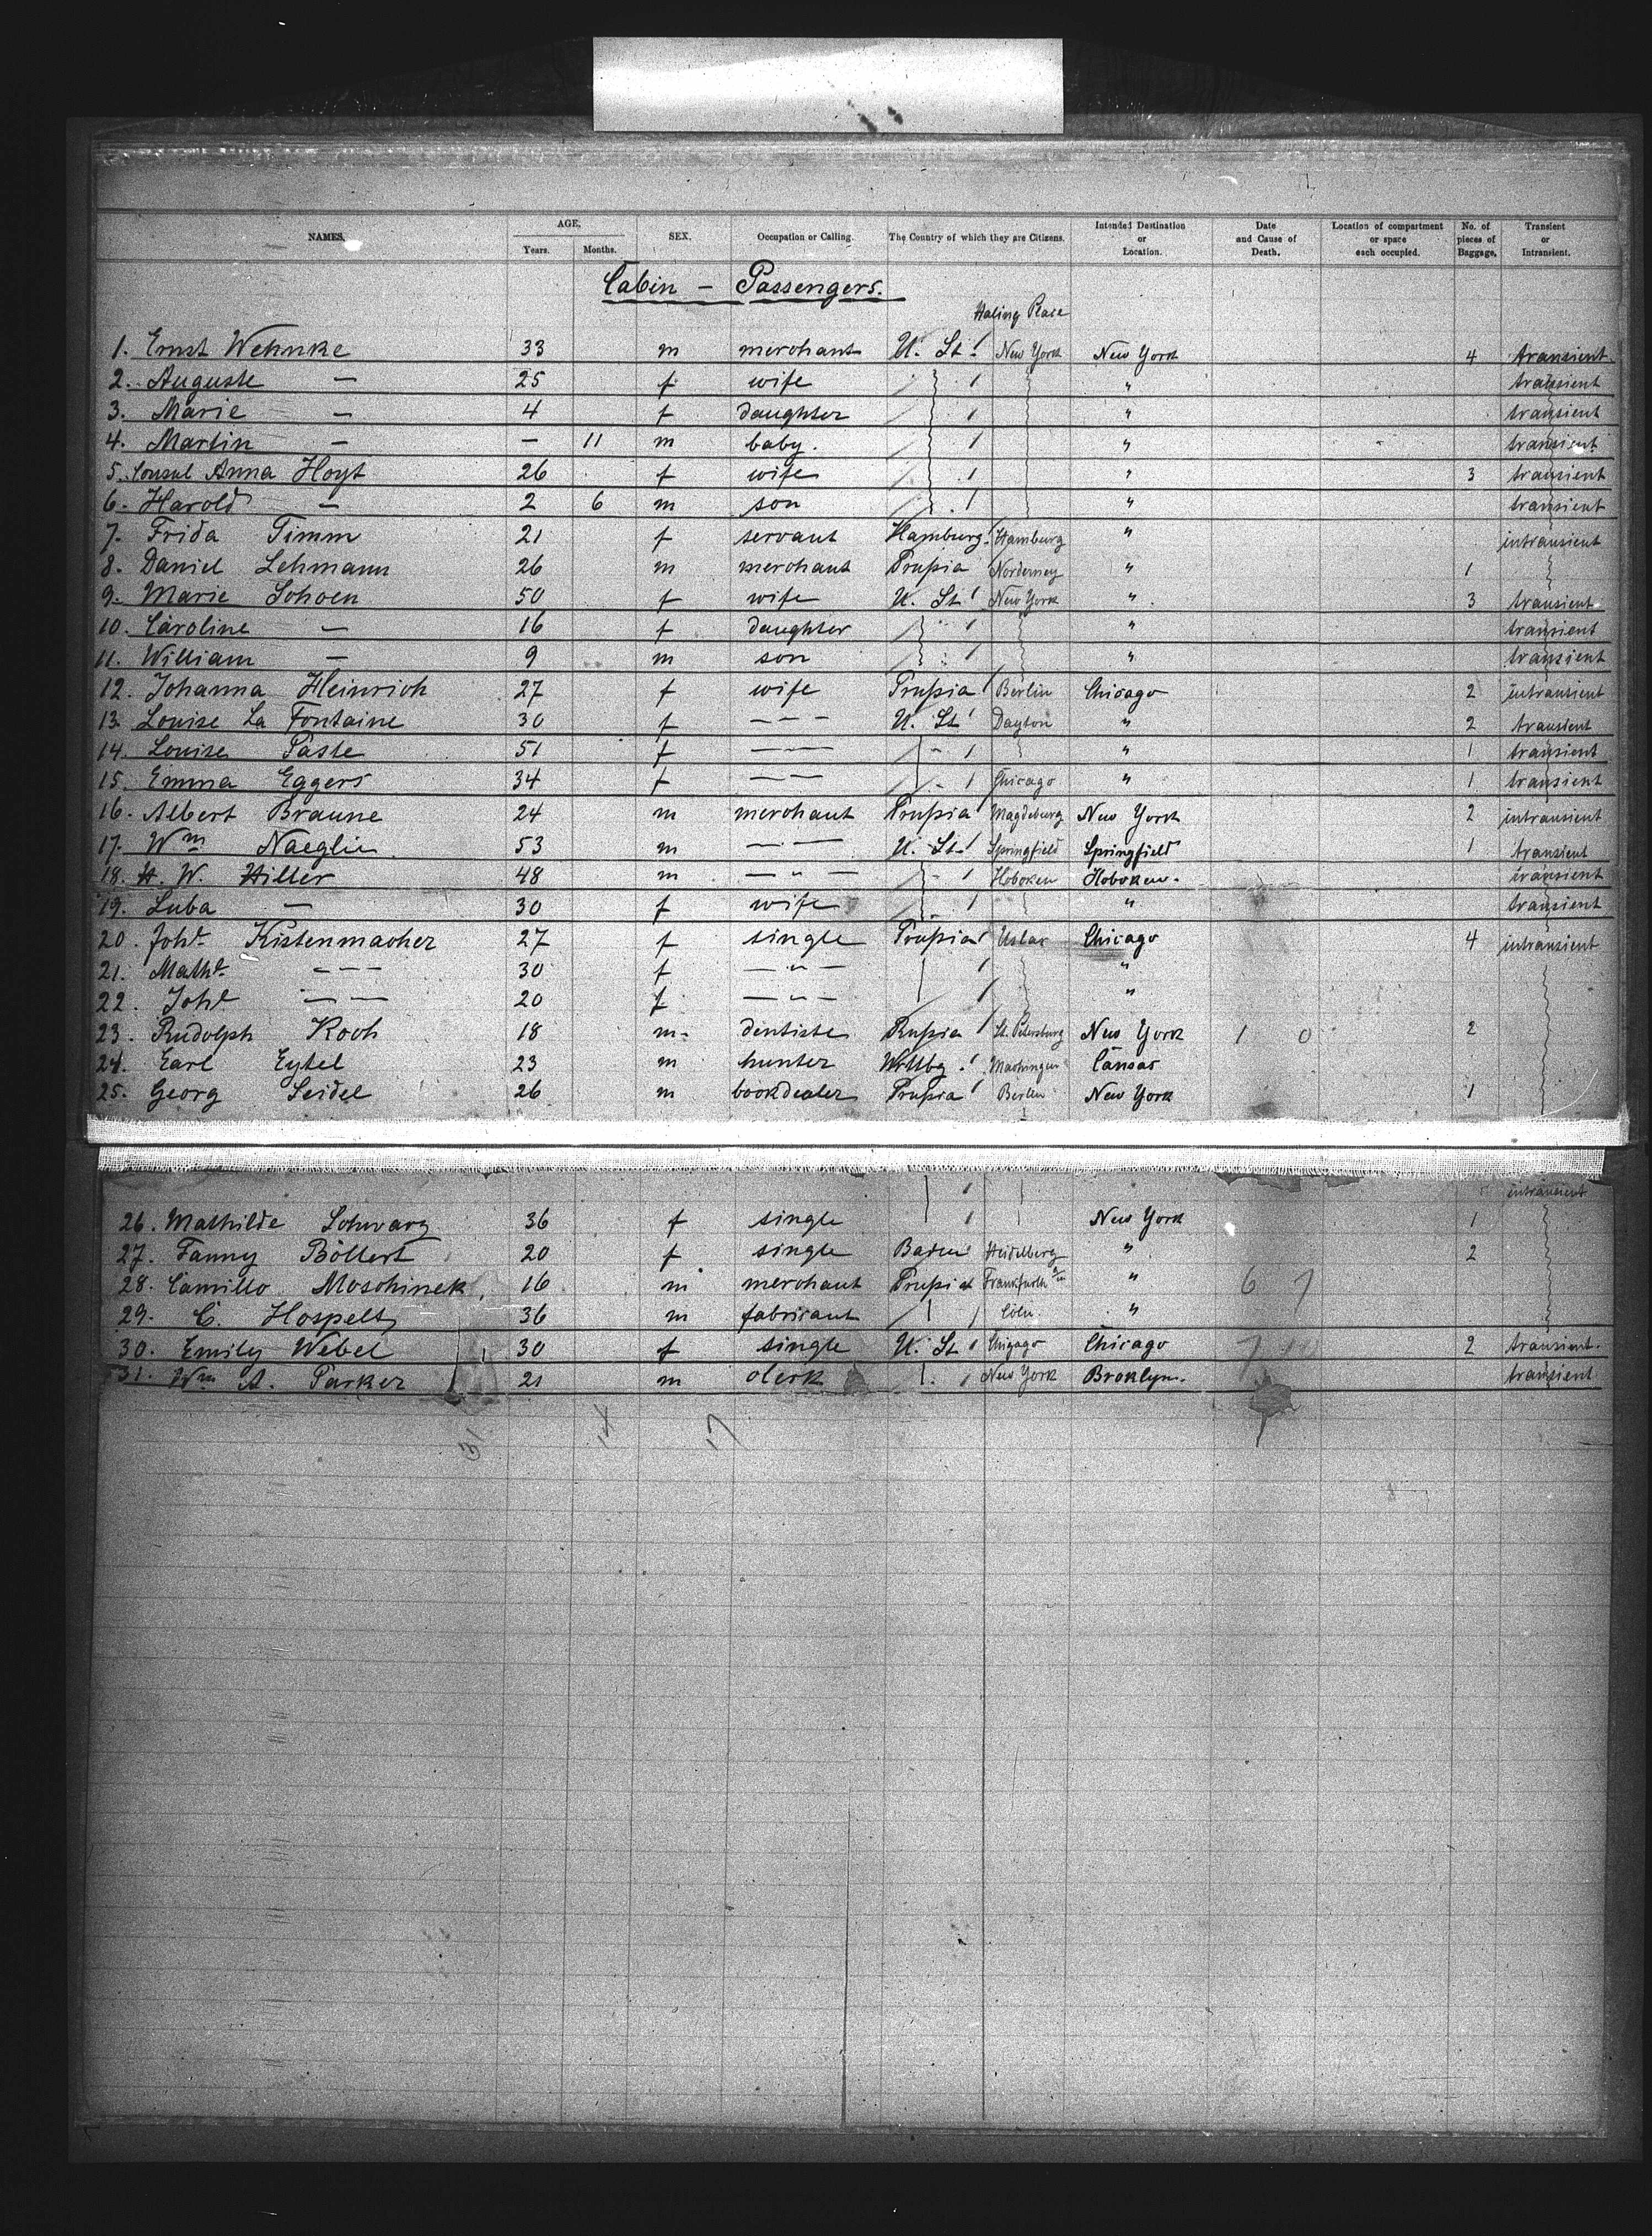 NAMES. AGE. Years. Months. SEX. Occupation or Calling. The Country of which they are Citizens. Intended Destination or Location. Date and Cause of Death. Location of compartment or space each occupied. No. of pieces of Baggage. Transient or Intransient.
Cabin - Passengers.
Haling Place
1. Ernst Wehnke 33 m merchant U. St. New York New York 4 transient
2. Auguste — 25 f wife " transient
3. Marie — 4 f daughter " transient
4. Martin — — 11 m baby. " transient
5. Consul Anna Hoyt 26 f wife " 3 transient
6. Harold — 2 6 m son " transient
7. Frida Timm 21 f servant Hamburg Hamburg " intransient
8. Daniel Lehmann 26 m merchant Prussia Norderney " 1
9. Marie Schoen 50 f wife U. St. New York " 3 transient
10. Caroline — 16 f daughter " transient
11. William — 9 m son " transient
12. Johanna Heinrich 27 f wife Prussia Berlin Chicago 2 intransient
13. Louise La Fontaine 30 f — — — U. St Dayton " 2 transient
14. Louise Paste 51 f — — — " 1 transient
15. Emma Eggers 34 f — — — Chicago " 1 transient
16. Albert Braune 24 m merchant Prussia Magdeburg New York 2 intransient
17. Wm Naeglie 53 m — — U. St. Springfield Springfield 1 transient
18. H. W. Hiller 48 m — " — Hoboken Hoboken. transient
19. Luba — 30 f wife " transient
20. Johe Kistenmacher 27 f single Prussia Uslar Chicago 4 intransient
21. Mathe — — — 30 f — " — "
22. Johe — — 20 f — " — "
23. Rudolph Koch 18 m dentiste Russia St. Petersburg New York 1 0 2
24. Earl Eytel 23 m hunter Wttbg. Cansas
25. Georg Seidel 26 m bookdealer Prussia Berlin New York 1
intransient
26. Mathilde Schwarz 36 f single New York 1
27. Fanny Böllert 20 f single Baden Heidelberg " 2
28. Camillo Moschinek 16 m merchant Prussia Frankfurth a/m " 6 7
29. C. Hospelt 36 m fabricant Cöln. "
30. Emily Webel 30 f single U. St Chicago Chicago 7 2 transient.
31. Wm A. Parker 21 m clerk New York Broklyn. 7 transient
31 14 17